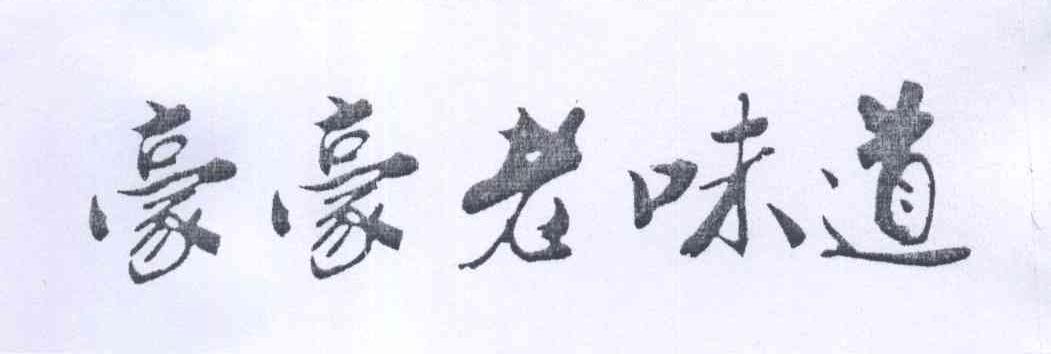 豪豪老味道